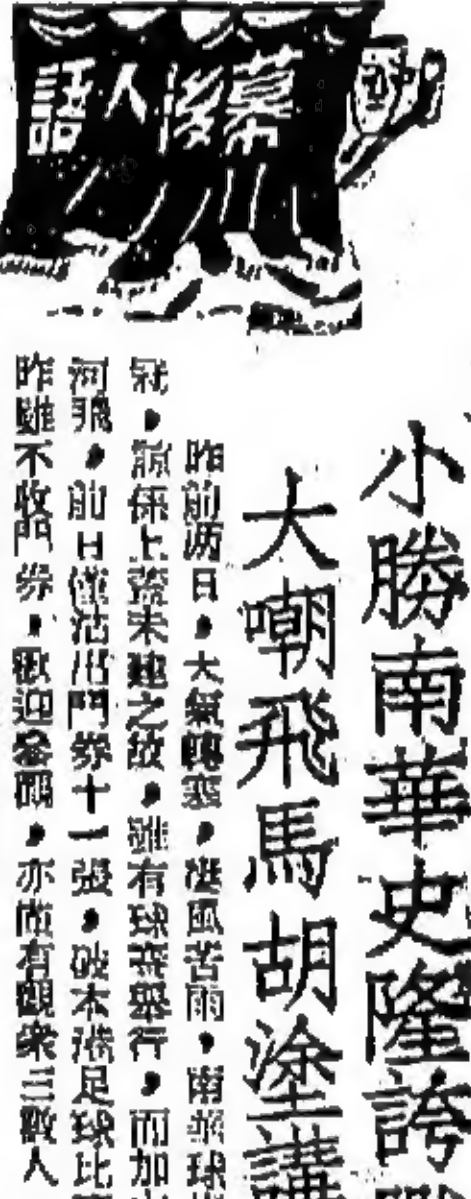 幕後人語
小勝南華史隆誇
大嘲飛馬胡塗講
昨前兩日，大氣轉寒，淒風苦雨，南華球
冠，前係上蓋未建之故，雖有球賽舉行，而加
河飛，前日僅沽出門券十一張，破本港足球比
昨雖不收門券，歡迎參觀，亦僅有觀衆三數人